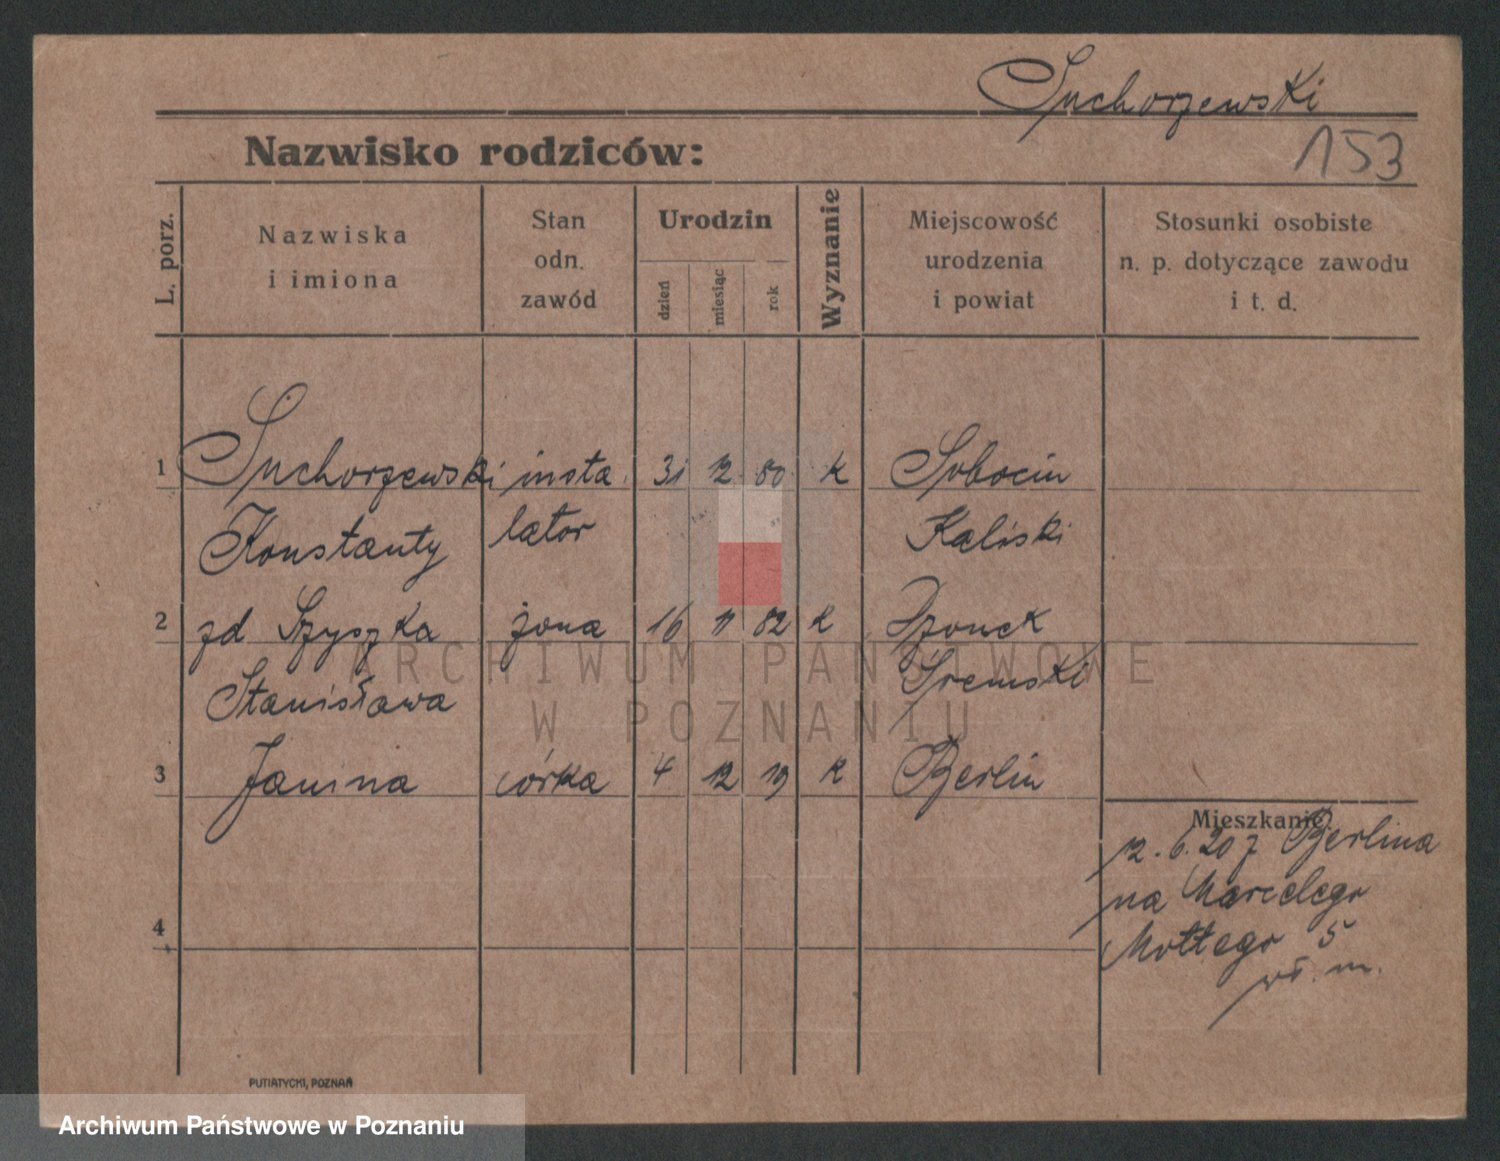 Suchorzewski
153
Nazwisko rodziców:
L. porz.
Nazwiska
i imiona
Stan
odn.
zawód
Urodzin
dzień
miesiąc
rok
Wyznanie
Miejscowość
urodzenia
i powiat
Stosunki osobiste
n. p. dotyczące zawodu
i t. d.
1 Suchorzewski insta 31 12 80 k Sobocin
Konstanty lator Kaliski
2 zd Szyszka żona 16 11 82 k Dzonek
Stanisława Śremski
3 Janina córka 4 12 19 k Berlin
Mieszkanie
12.6.20 z Berlina
na Marcelego
4
Mottego 5
wł. m.
PUTIATYCKI, POZNAŃ
ARCHIWUM PAŃSTWOWE
W POZNANIU
Archiwum Państwowe w Poznaniu